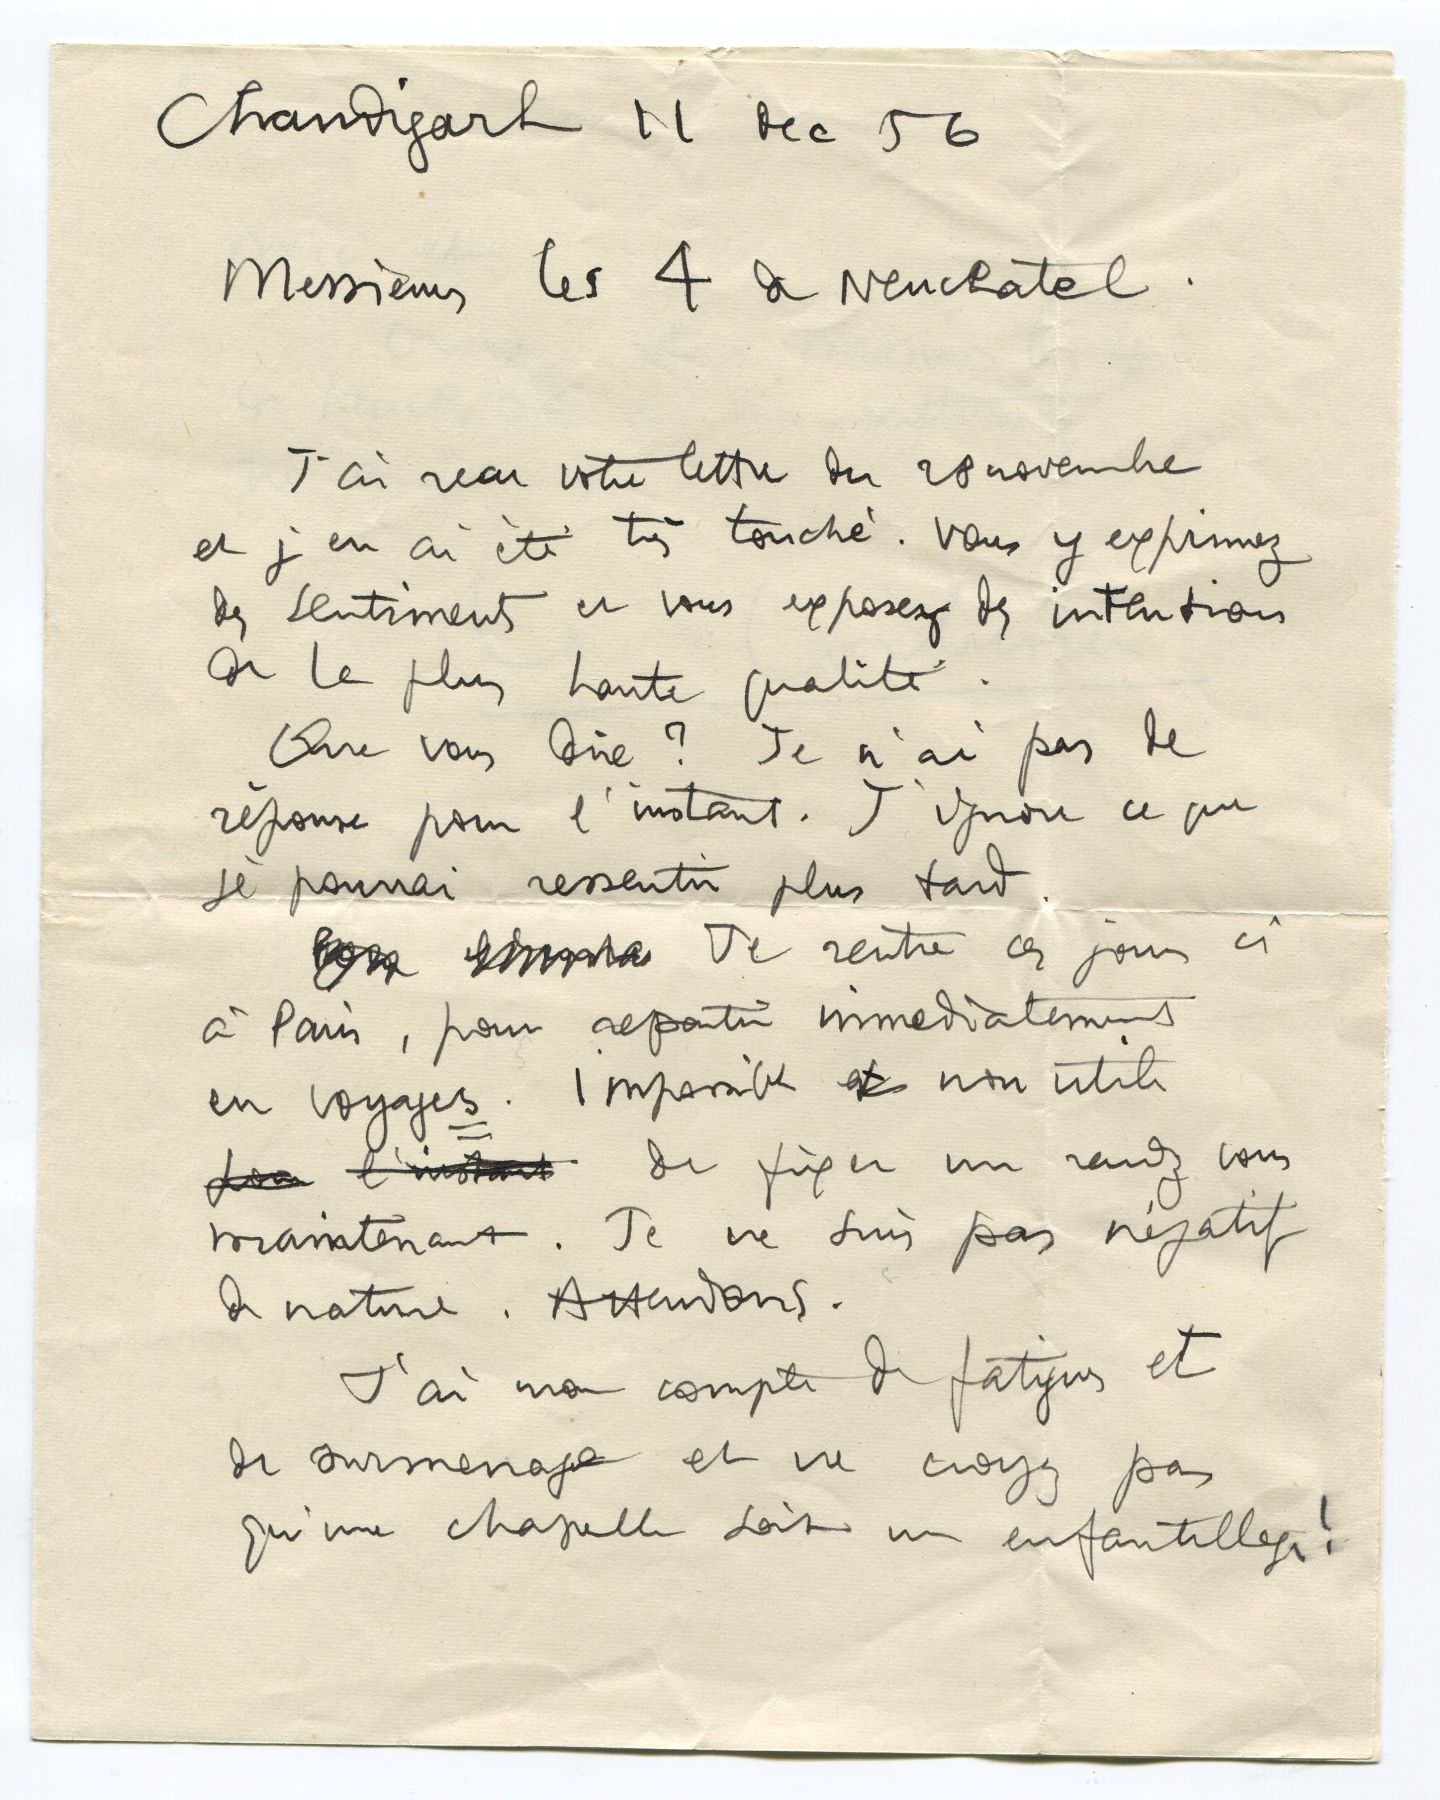 Chandigarh 11 dec 56
Messieurs les 4 de Neuchatel.
J'ai reçu votre lettre du 28 novembre
et j'en ai été très touché. Vous y exprimez
des sentiments et vous exposez des intentions
de la plus haute qualité.
Que vous dire ? Je n'ai pas de
réponse pour l'instant. J'ignore ce que
je pourrai ressentir plus tard.
Je rentre ces jours ci
à Paris, pour repartir immediatement
en voyages. Impossible et non utile
pour l'instant de fixer un rendez vous
maintenant. Je ne suis pas négatif
de nature. Attendons.
J'ai mon compte de fatigues et
de surmenage et ne croyez pas
qu'une chapelle soit un enfantillage!